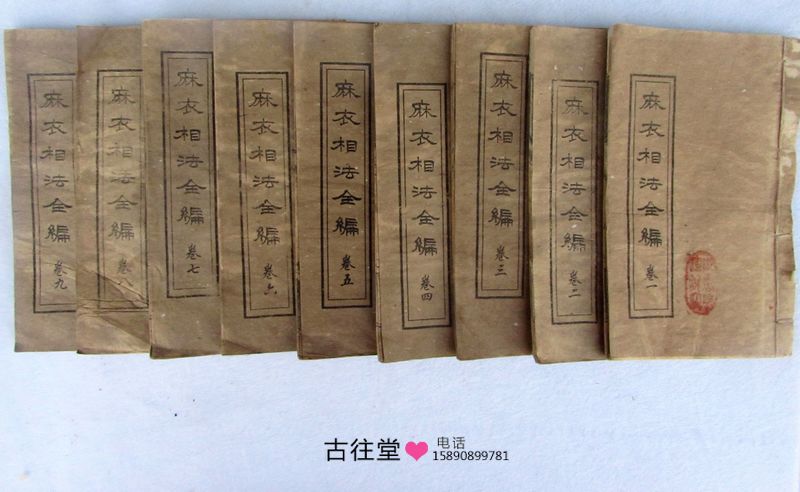 麻衣相法全編 卷九
麻衣相法全編 卷八
麻衣相法全編 卷七
麻衣相法全編 卷六
麻衣相法全編 卷五
麻衣相法全編 卷四
麻衣相法全編 卷三
麻衣相法全編 卷二
麻衣相法全編 卷一
古往堂
电话
15890899781